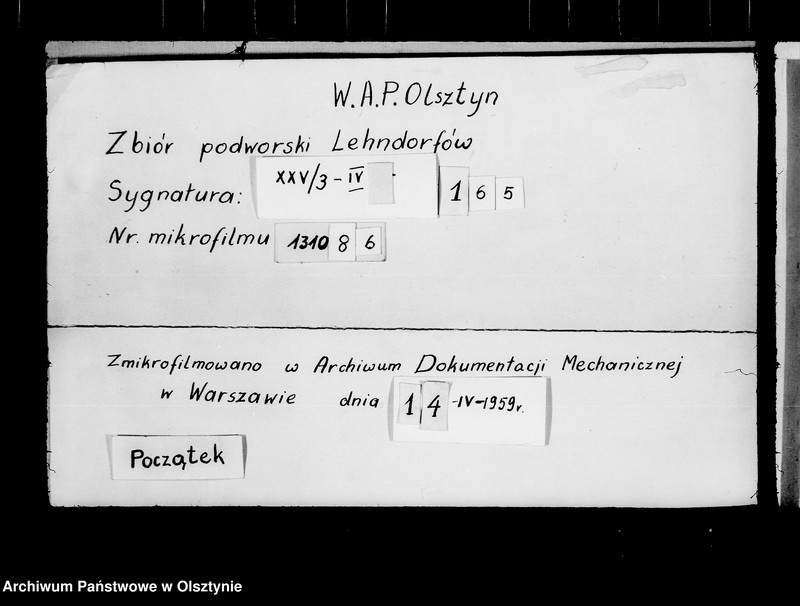 W.A.P. Olsztyn
Zbiór podworski Lehndorfów
Sygnatura: XXV/3-IV 165
Nr. mikrofilmu 131086
Zmikrofilmowano w Archiwum Dokumentacji Mechanicznej
w Warszawie dnia 14-IV-1959r.
Początek
Archiwum Państwowe w Olsztynie